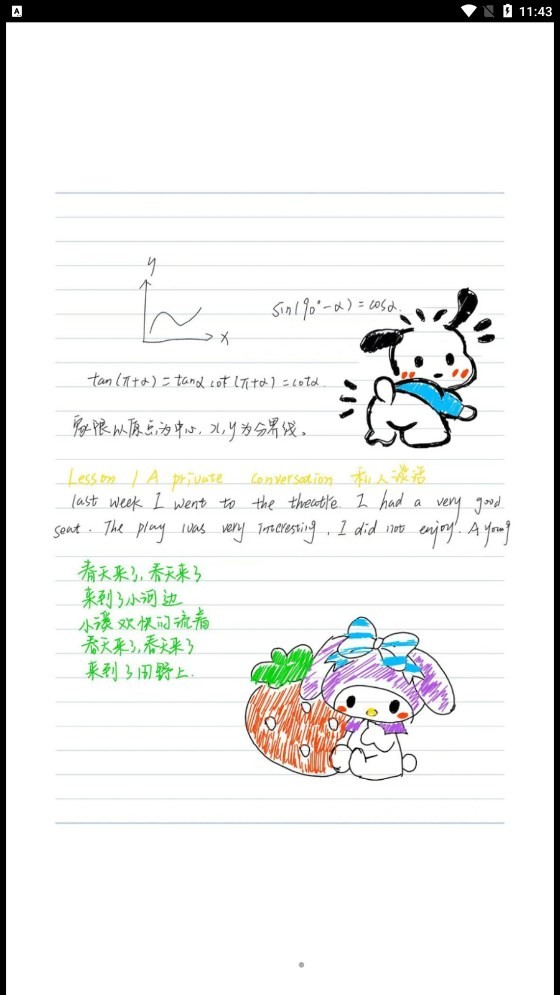 11:43
y
sin(90°-α)=cosα.
x
tan(π+α)=tanα cot(π+α)=cotα.
象限以原点为中心,x,y为分界线。
Lesson 1 A private conversation 私人谈话
last week I went to the theatre. I had a very good
seat. The play was very interesting, I did not enjoy. A young
春天来了,春天来了
来到了小河边
小溪欢快的流着
春天来了,春天来了
来到了田野上.